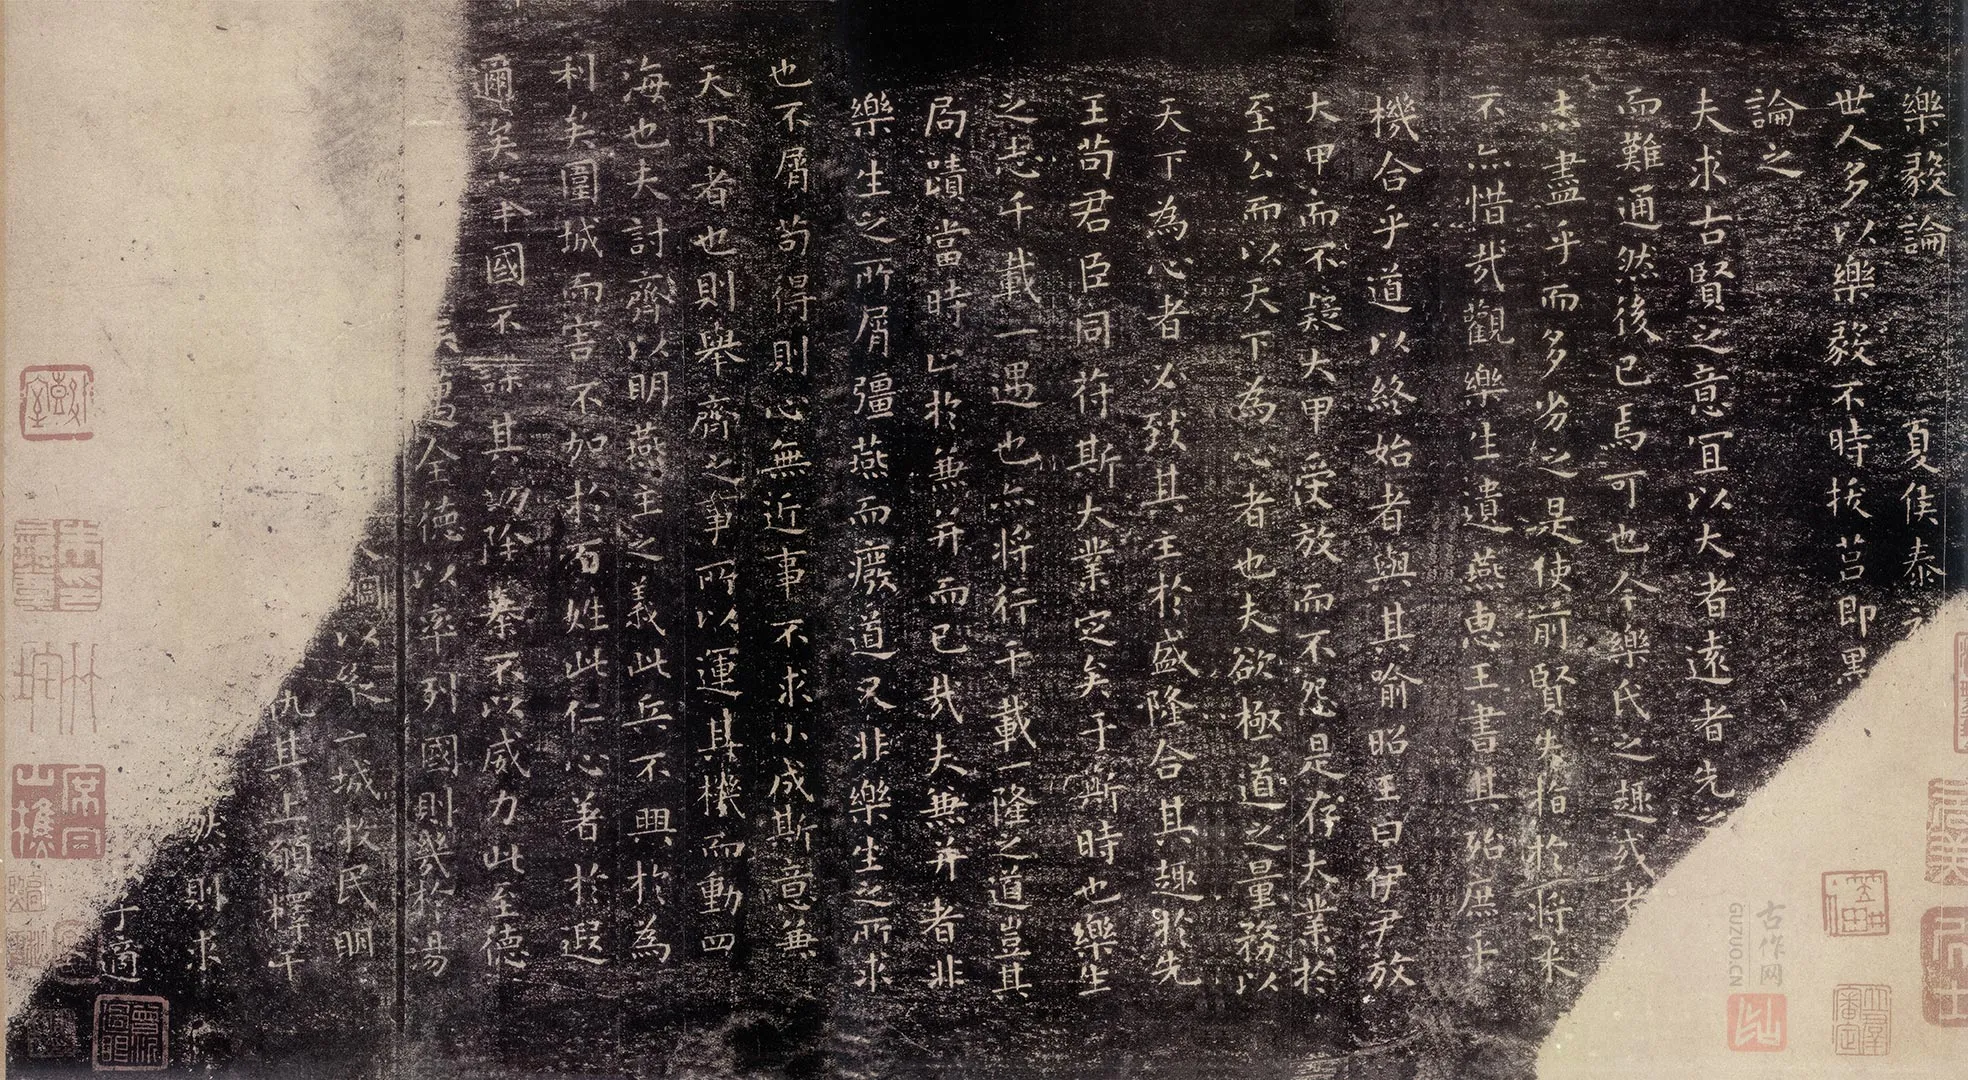 樂毅論 夏侯泰
世人多以樂毅不時拔莒即墨
論之
夫求古賢之意宜以大者遠者先之
而難通然後已焉可也今樂氏之趣或者
盡乎而多劣之是使前賢失指於將來
不亦惜哉觀樂生遺燕惠王書其殆庶乎
機合乎道以終始者與其喻昭王曰伊尹放
大甲而不疑大甲受放而不怨是存大業於
至公而以天下為心者也夫欲極道之量務以
天下為心者必致其主於盛隆合其趣於先
王苟君臣同苻斯大業定矣于斯時也樂生
之志千載一遇也亦將行千載一隆之道豈其
局蹟當時止於兼并而已哉夫兼并者非
樂生之所屑彊燕而廢道又非樂生之所求
也不屑苟得則心無近事不求小成斯意兼
天下者也則舉齊之事所以運其機而動四
海也夫討齊以明燕主之義此兵不興於為
利矣圍城而害不加於百姓此仁心著於遐
邇矣舉國不謀其功除暴不以威力此至德
全德以率列國則幾於湯
以縱一城牧民明
仇其上願釋干
然則求
于適
古作网
GUZUO.CN